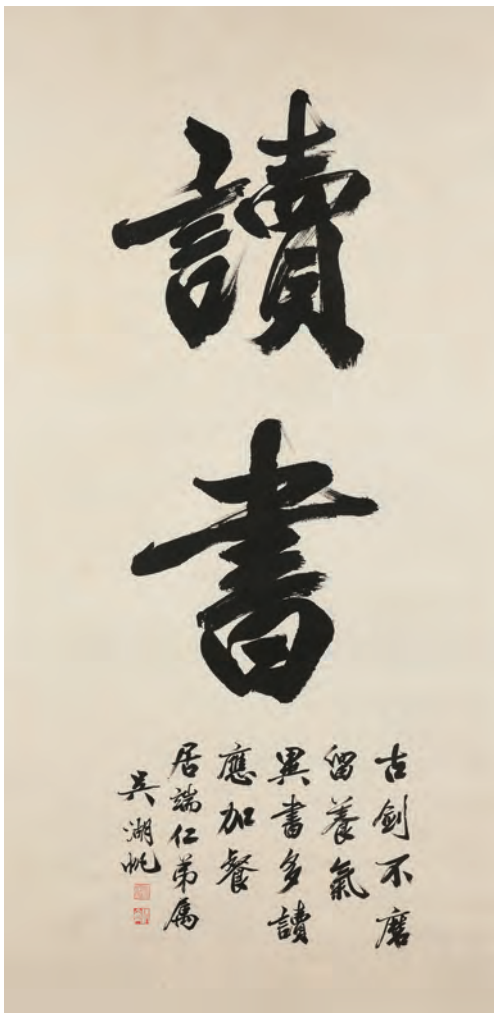 讀書
古劍不磨
留養氣
異書多讀
應加餐
居端仁弟屬
吳湖帆